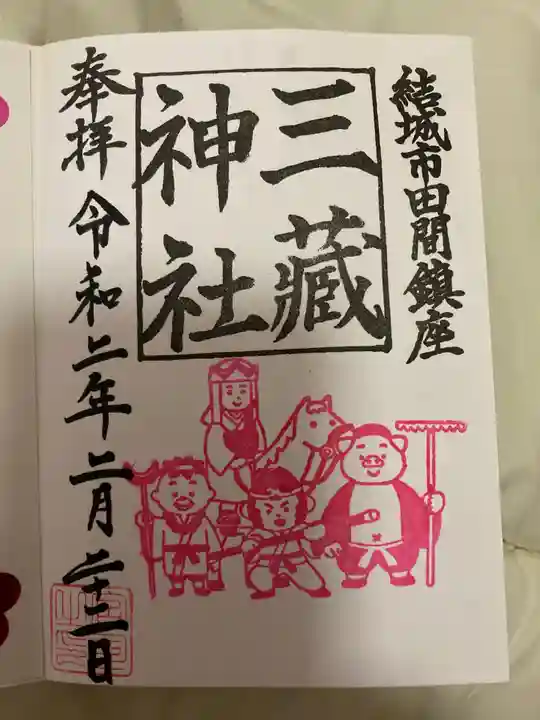 結城市田間鎮座
三蔵
神社
奉拝 令和二年二月二十二日